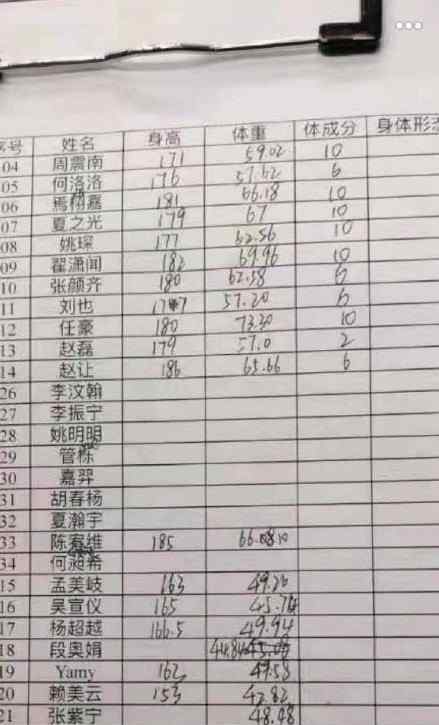 序号 姓名 身高 体重 体成分 身体形态
04 周震南 171 59.02 10
05 何洛洛 176 57.62 6
06 焉栩嘉 181 66.18 10
07 夏之光 179 67 10
08 姚琛 177 62.56 10
09 翟潇闻 182 69.96 10
10 张颜齐 180 62.58 6
11 刘也 57.20 6
12 任豪 180 73.30 10
13 赵磊 179 57.0 2
14 赵让 186 65.66 6
26 李汶翰
27 李振宁
28 姚明明
29 管栎
30 嘉羿
31 胡春杨
32 夏瀚宇
33 陈宥维 185
34 何昶希
15 孟美岐 163 49.26
16 吴宣仪 165 45.74
17 杨超越 166.5 49.94
18 段奥娟 44.84
19 Yamy 162 49.58
20 赖美云 153 42.82
21 张紫宁 48.08